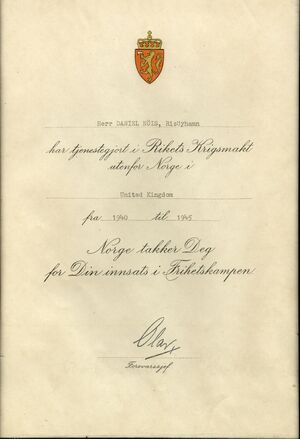 Herr DANIEL NÖIS, Risöyhamn
har tjenestegjort i Rikets Krigsmakt
utenfor Norge i
United Kingdom
fra 1940 til 1945
Norge takker Deg
for Din innsats i Frihetskampen
Olav
Forsvarssjef